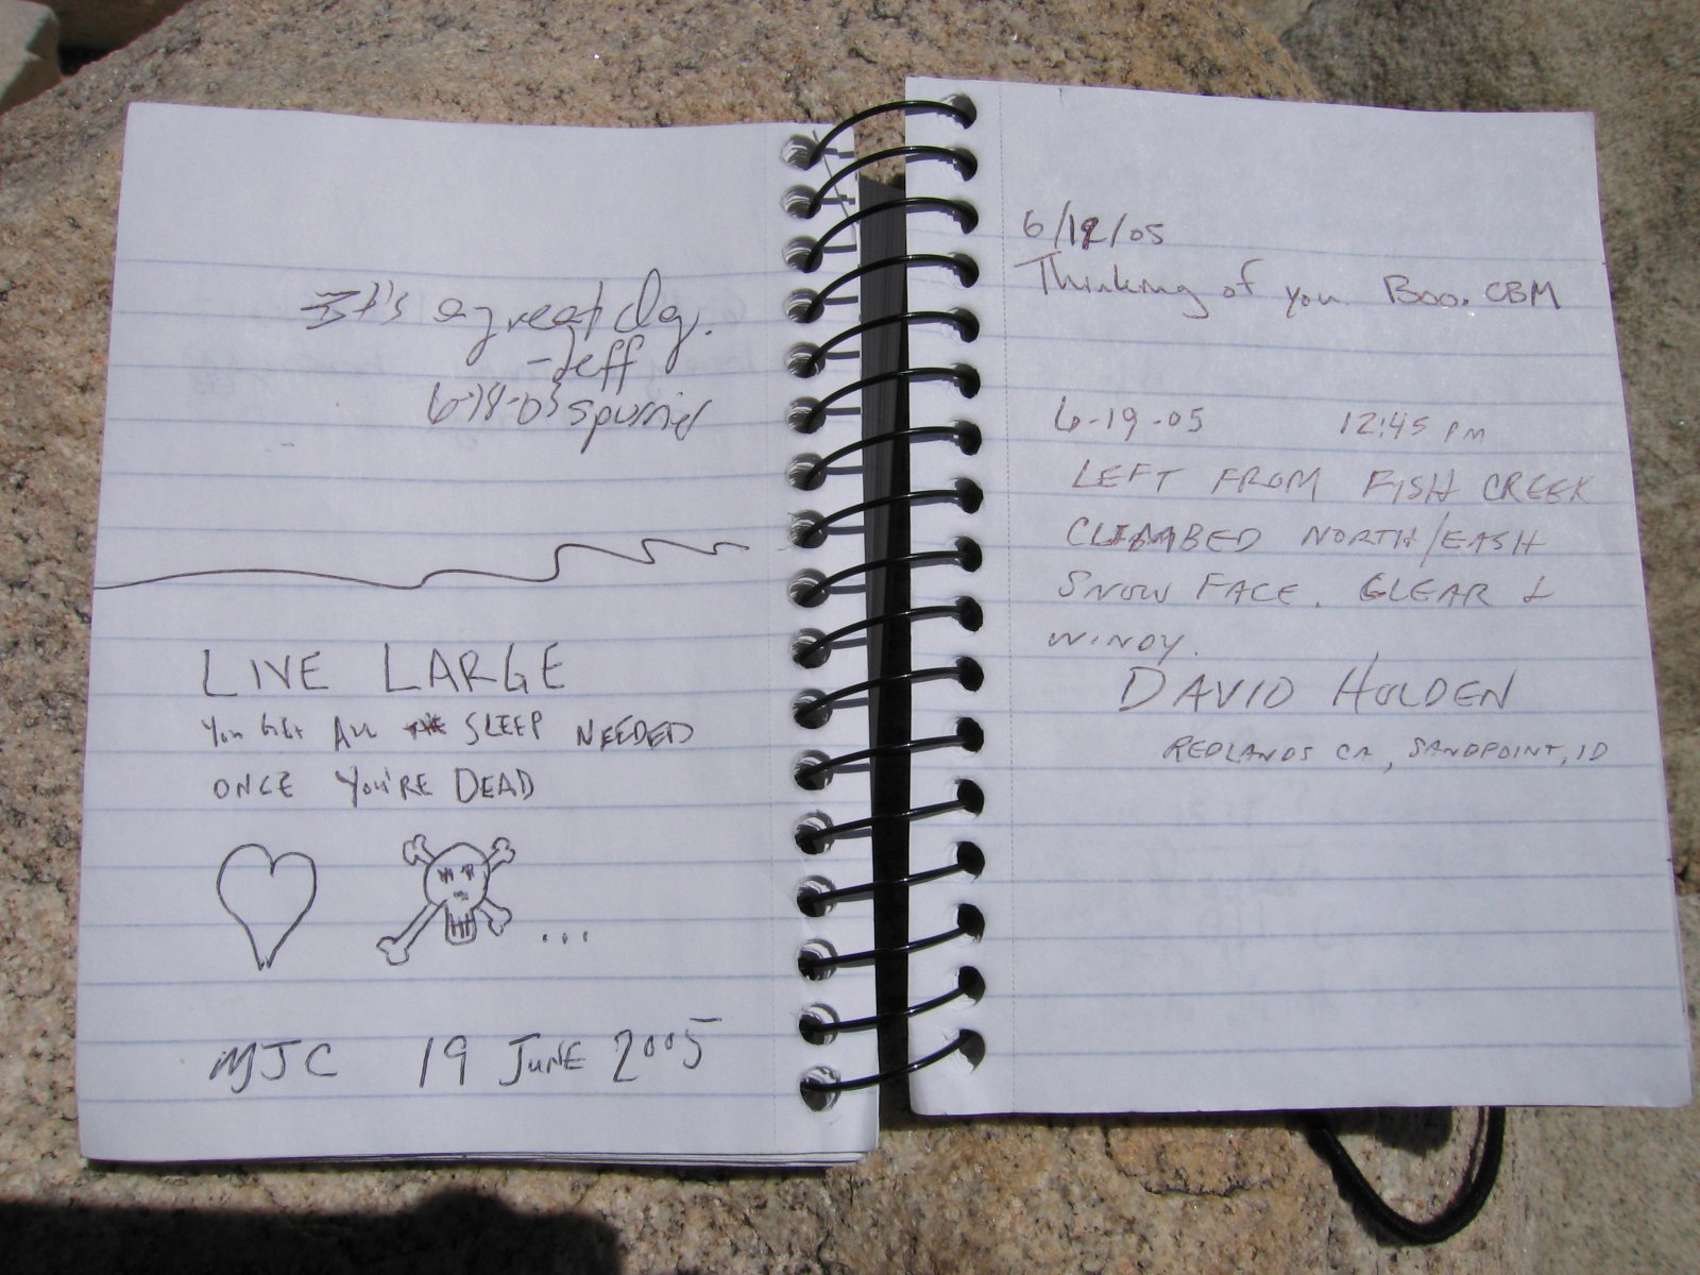 It's a great day.
-Jeff
6-18-05 Spurrier
LIVE LARGE
YOU GET ALL THE SLEEP NEEDED
ONCE YOU'RE DEAD
...
MJC 19 JUNE 2005
6/12/05
Thinking of you Boo. CBM
6-19-05 12:45 PM
LEFT FROM FISH CREEK
CLIMBED NORTH/EASH
SNOW FACE. CLEAR &
WINDY.
DAVID HOLDEN
REDLANDS CA, SANDPOINT, ID